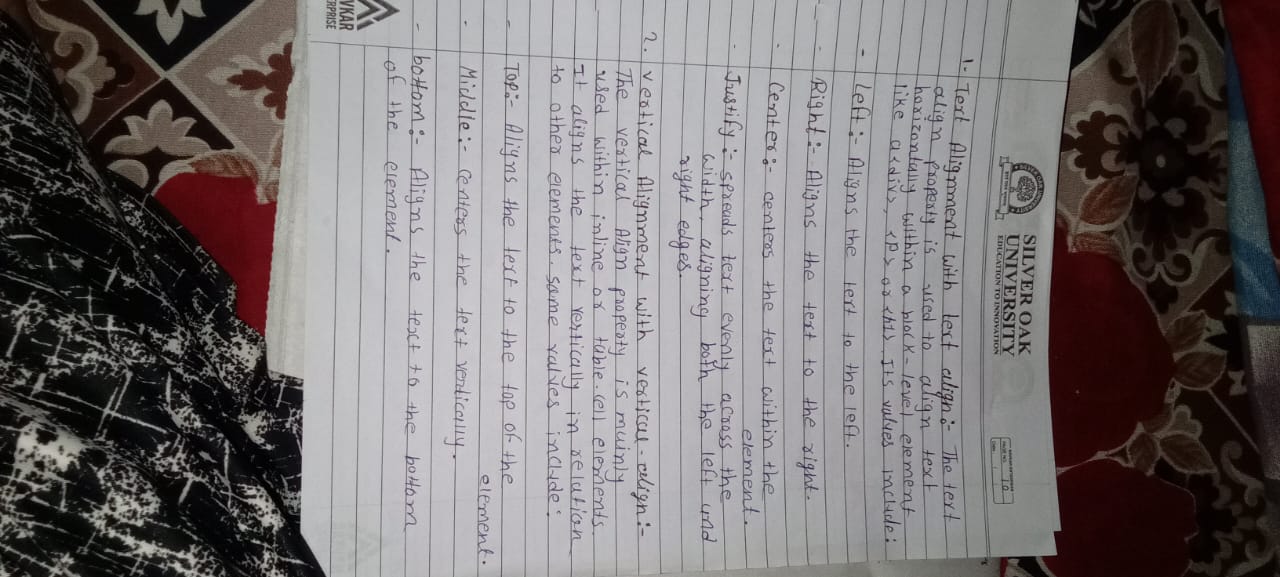 SILVER OAK
UNIVERSITY
EDUCATION TO INNOVATION
1. Text Alignment with text align: The text
align property is used to align text
horizontally within a block-level element
like a <div>, <p> or <h1> Its values include:
- Left:- Aligns the text to the left.
- Right:- Aligns the text to the right.
- Center:- centers the text within the
element.
- Justify:- spreads text evenly across the
width, aligning both the left and
right edges.
2. vertical Alignment with vertical-align:-
The vertical Align property is mainly
used within inline or table-cell elements.
It aligns the text vertically in relation
to other elements some values include:
- Top:- Aligns the text to the top of the
element.
- Middle:- centers the text vertically.
- bottom:- Aligns the text to the bottom
of the element.
VKAR
ERPRISE